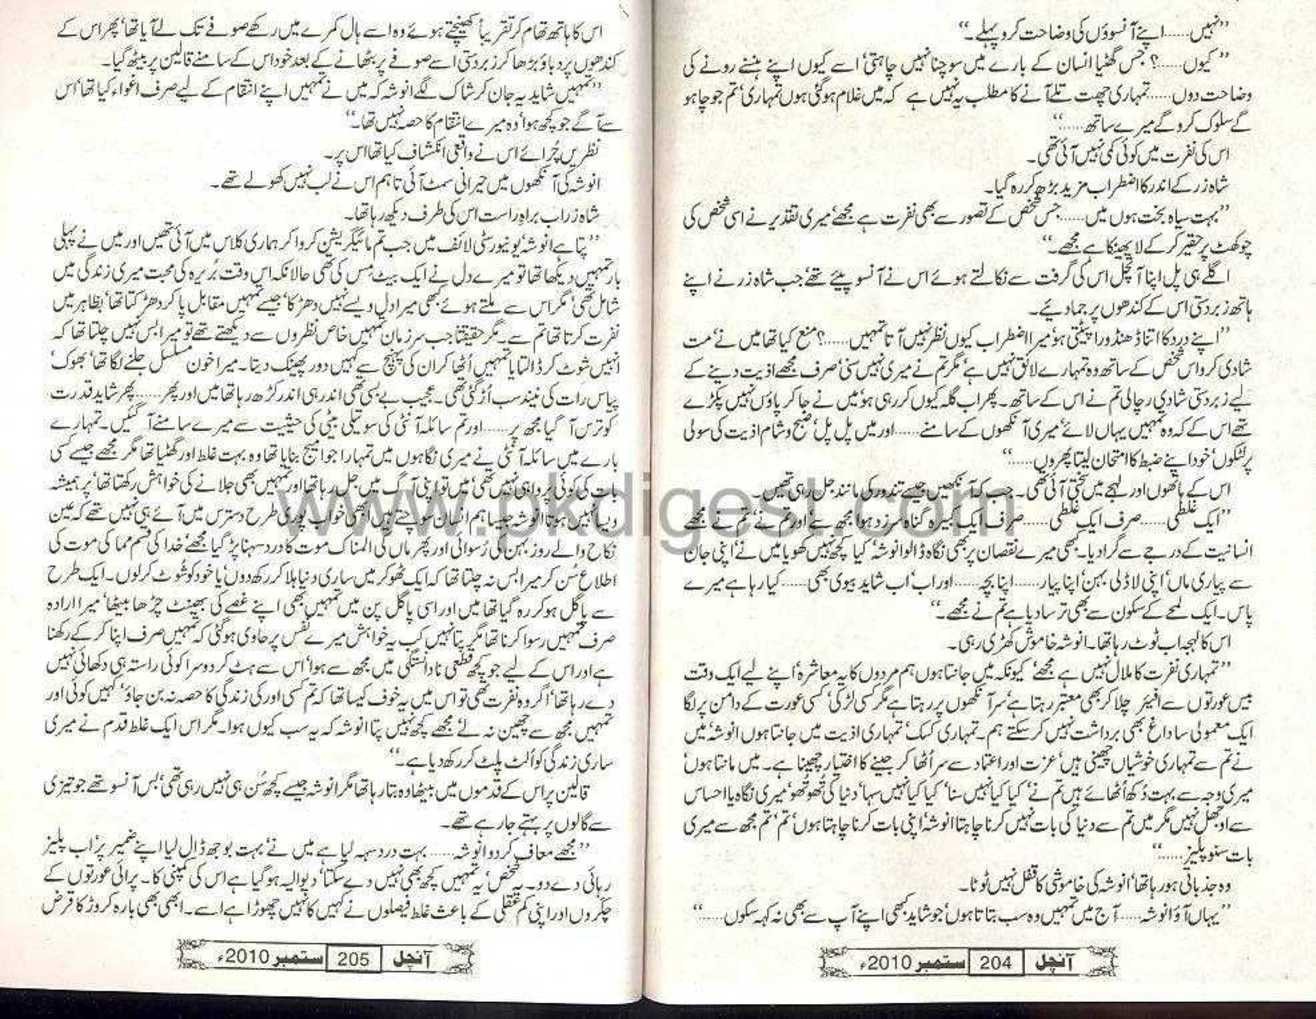 ”نہیں......اپنے آنسوؤں کی وضاحت کرو پہلے۔“
”کیوں......؟ جس گھٹیا انسان کے بارے میں سوچنا نہیں چاہتی‘ اسے کیوں اپنے ہنسنے رونے کی
وضاحت دوں......تمہاری چھت تلے آنے کا مطلب یہ نہیں ہے کہ میں غلام ہو گئی ہوں تمہاری‘ تم جو چاہو
گے سلوک کرو گے میرے ساتھ......“
اس کی نفرت میں کوئی کمی نہیں آئی تھی۔
شاہ زر کے اندر کا اضطراب مزید بڑھ کر رہ گیا۔
”بہت سیاہ بخت ہوں میں......جس شخص کے تصور سے بھی نفرت ہے مجھے‘ میری تقدیر نے اسی شخص کی
چوکھٹ پر حقیر کر کے لا پھینکا ہے مجھے۔“
اگلے ہی پل اپنا آنچل اس کی گرفت سے نکالتے ہوئے اس نے آنسو پیئے تھے‘ جب شاہ زر نے اپنے
ہاتھ زبردستی اس کے کندھوں پر جما دیئے۔
”اپنے درد کا اتنا ڈھنڈورا پیٹتی ہو‘ میرا اضطراب کیوں نظر نہیں آتا تمہیں......؟ منع کیا تھا میں نے‘ مت
شادی کرو اس شخص کے ساتھ وہ تمہارے لائق نہیں ہے‘ مگر تم نے میری نہیں سنی‘ صرف مجھے اذیت دینے کے
لیے زبردستی شادی رچالی تم نے اس کے ساتھ۔ پھر اب گلہ کیوں کر رہی ہو‘ میں نے جا کر پاؤں نہیں پکڑے
تھے اس کے کہ وہ تمہیں یہاں لائے‘ میری آنکھوں کے سامنے......اور میں پل پل‘ صبح و شام اذیت کی سولی
پر لٹکوں‘ خود اپنے ضبط کا امتحان لیتا پھروں......“
اس کے ہاتھوں اور لہجے میں سختی آئی تھی۔ جب کہ آنکھیں جیسے تندور کی مانند جل رہی تھیں۔
”ایک غلطی......صرف ایک غلطی......صرف ایک کبیرہ گناہ سرزد ہوا مجھ سے اور تم نے‘ تم نے مجھے
انسانیت کے درجے سے گرا دیا۔ کبھی میرے نقصان پر بھی نگاہ ڈالو انوشہ‘ کیا کچھ نہیں کھویا میں نے‘ اپنی جان
سے پیاری ماں‘ اپنی لاڈلی بہن‘ اپنا پیار......اپنا بچہ......اور اب‘ اب شاید بیوی بھی......کیا رہا ہے میرے
پاس۔ ایک لمحے کے سکون سے بھی ترسا دیا ہے تم نے مجھے۔“
اس کا لہجہ اب ٹوٹ رہا تھا۔ انوشہ خاموش کھڑی رہی۔
”تمہاری نفرت کا ملال نہیں ہے مجھے‘ کیونکہ میں جانتا ہوں‘ ہم مردوں کا یہ معاشرہ‘ اپنے لیے ایک وقت
بیس عورتوں سے افیئر چلا کر بھی معتبر رہتا ہے‘ سر آنکھوں پر رہتا ہے مگر کسی لڑکی‘ کسی عورت کے دامن پر لگا
ایک معمولی سا داغ بھی برداشت نہیں کر سکتے ہم۔ تمہاری کسک‘ تمہاری اذیت میں جانتا ہوں انوشہ‘ میں
نے تم سے تمہاری خوشیاں چھینی ہیں‘ عزت اور اعتماد سے سر اٹھا کر جینے کا اختیار چھینا ہے۔ میں مانتا ہوں‘
میری وجہ سے بہت دُکھ اُٹھائے ہیں تم نے‘ کیا کیا نہیں سنا‘ کیا کیا نہیں سہا‘ دنیا کی تھو تھو‘ میری نگاہ با احساس
سے اوجھل نہیں مگر میں تم سے دنیا کی بات نہیں کرنا چاہتا انوشہ‘ اپنی بات کرنا چاہتا ہوں‘ تم‘ تم مجھ سے میری
بات سنو پلیز......“
وہ جذباتی ہو رہا تھا‘ انوشہ کی خاموشی کا قفل نہیں ٹوٹا۔
”یہاں آؤ انوشہ......آج میں تمہیں وہ سب بتاتا ہوں‘ جو شاید کبھی اپنے آپ سے بھی نہ کہہ سکوں......“
آنچل 204 ستمبر 2010ء
اس کا ہاتھ تھام کر تقریباً کھینچتے ہوئے وہ اسے ہال کمرے میں رکھے صوفے تک لے آیا تھا‘ پھر اس کے
کندھوں پر دباؤ بڑھا کر زبردستی اسے صوفے پر بٹھانے کے بعد خود اس کے سامنے قالین پر بیٹھ گیا۔
”تمہیں شاید یہ جان کر شاک لگے انوشہ کہ میں نے تمہیں اپنے انتقام کے لیے صرف اغواء کیا تھا‘ اس
سے آگے جو کچھ ہوا‘ وہ میرے انتقام کا حصہ نہیں تھا۔“
نظریں چُرائے اس نے واقعی انکشاف کیا تھا اس پر۔
انوشہ کی آنکھوں میں حیرانی سمٹ آئی تاہم اس نے لب نہیں کھولے تھے۔
شاہ زر اب براہِ راست اس کی طرف دیکھ رہا تھا۔
”پتا ہے انوشہ‘ یونیورسٹی لائف میں جب تم مائیگریشن کروا کر ہماری کلاس میں آئی تھیں اور میں نے پہلی
بار تمہیں دیکھا تھا تو میرے دل نے ایک بیٹ مِس کی تھی حالانکہ اس وقت بُریرہ کی محبت میری زندگی میں
شامل تھی‘ مگر اس سے ملتے ہوئے کبھی میرا دل ویسے نہیں دھڑکا‘ جیسے تمہیں مقابل پا کر دھڑکتا تھا‘ بظاہر میں
نفرت کرتا تھا تم سے۔ مگر حقیقتاً جب سر زمان تمہیں خاص نظروں سے دیکھتے تھے تو میرا بس نہیں چلتا تھا کہ
انہیں شوٹ کر ڈالتا یا تمہیں اُٹھا کر ان کی پہنچ سے کہیں دور پھینک دیتا۔ میرا خون مسلسل جلنے لگا تھا‘ بھوک‘
پیاس رات کی نیند سب اُڑ گئی تھی۔ عجیب بے بسی تھی اندر ہی اندر کڑھ رہا تھا میں اور پھر......پھر شاید قدرت
کو ترس آ گیا مجھ پر......اور تم سائلہ آنٹی کی سوتیلی بیٹی کی حیثیت سے میرے سامنے آ گئیں۔ تمہارے
بارے میں سائلہ آنٹی نے میری نگاہوں میں تمہارا جو امیج بنایا تھا وہ بہت غلط اور گھٹیا تھا مگر مجھے جیسے کسی
بات کی کوئی پروا ہی نہیں تھی‘ میں تو اپنی آگ میں جل رہا تھا اور تمہیں بھی جلانے کی خواہش رکھتا تھا‘ پر ہمیشہ
ویسا نہیں ہوتا انوشہ جیسا ہم انسان سوچتے ہیں‘ ابھی خواب پوری طرح دسترس میں آئے ہی نہیں تھے کہ عین
نکاح والے روز بہن کی رُسوائی اور پھر ماں کی المناک موت کا درد سہنا پڑ گیا مجھے‘ خدا کی قسم مما کی موت کی
اطلاع سُن کر میرا بس نہ چلتا تھا کہ ایک ٹھوکر میں ساری دنیا ہلا کر رکھ دوں‘ یا خود کو شوٹ کر لوں۔ ایک طرح
سے پاگل ہو کر رہ گیا تھا میں اور اسی پاگل پن میں تمہیں بھی اپنے غصے کی بھینٹ چڑھا بیٹھا‘ میرا ارادہ
صرف تمہیں رسوا کرنا تھا مگر پتا نہیں کب یہ خواہش میرے نفس پر حاوی ہو گئی کہ تمہیں صرف اپنا کر کے رکھنا
ہے اور اس کے لیے جو کچھ قطعی نادانستگی میں مجھ سے ہوا‘ اس سے ہٹ کر دوسرا کوئی راستہ ہی دکھائی نہیں
دے رہا تھا‘ اگر وہ نفرت تھی تو اس میں یہ خوف کیسا تھا کہ تم کسی اور کی زندگی کا حصہ نہ بن جاؤ‘ کہیں کوئی اور
تمہیں مجھ سے چھین نہ لے‘ مجھے کچھ نہیں پتا انوشہ کہ یہ سب کیوں ہوا۔ مگر اس ایک غلط قدم نے میری
ساری زندگی کو اُلٹ پلٹ کر رکھ دیا ہے۔“
قالین پر اس کے قدموں میں بیٹھا وہ بتا رہا تھا مگر انوشہ جیسے کچھ سُن ہی نہیں رہی تھی‘ بس آنسو تھے جو تیزی
سے گالوں پر بہتے جا رہے تھے۔
”مجھے معاف کر دو انوشہ......بہت درد سہہ لیا ہے میں نے‘ بہت بوجھ ڈال لیا اپنے ضمیر پر‘ اب پلیز
رہائی دے دو۔ یہ شخص‘ یہ تمہیں کچھ بھی نہیں دے سکتا‘ دیوالیہ ہو گیا ہے اس کی کمپنی کا۔ پرائی عورتوں کے
چکروں اور اپنی کم عقلی کے باعث غلط فیصلوں نے کہیں کا نہیں چھوڑا ہے اسے۔ ابھی بھی بارہ کروڑ کا قرض
آنچل 205 ستمبر 2010ء
www.pkdigest.com